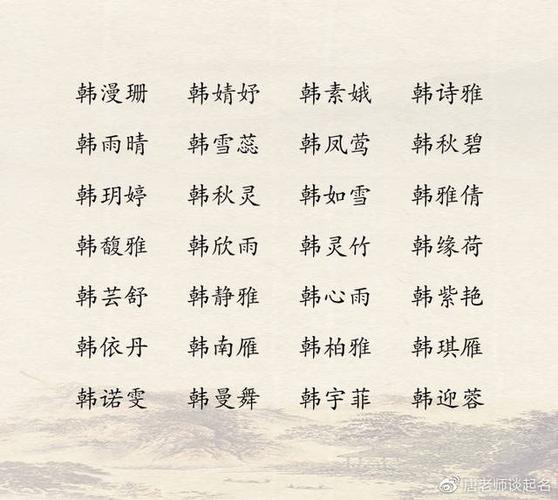 韩漫珊 韩婧妤 韩素娥 韩诗雅
韩雨晴 韩雪蕊 韩凤莺 韩秋碧
韩玥婷 韩秋灵 韩如雪 韩雅倩
韩馥雅 韩欣雨 韩灵竹 韩缘荷
韩芸舒 韩静雅 韩心雨 韩紫艳
韩依丹 韩南雁 韩柏雅 韩琪雁
韩诺雯 韩曼舞 韩宇菲 韩迎蓉
@唐老师谈起名